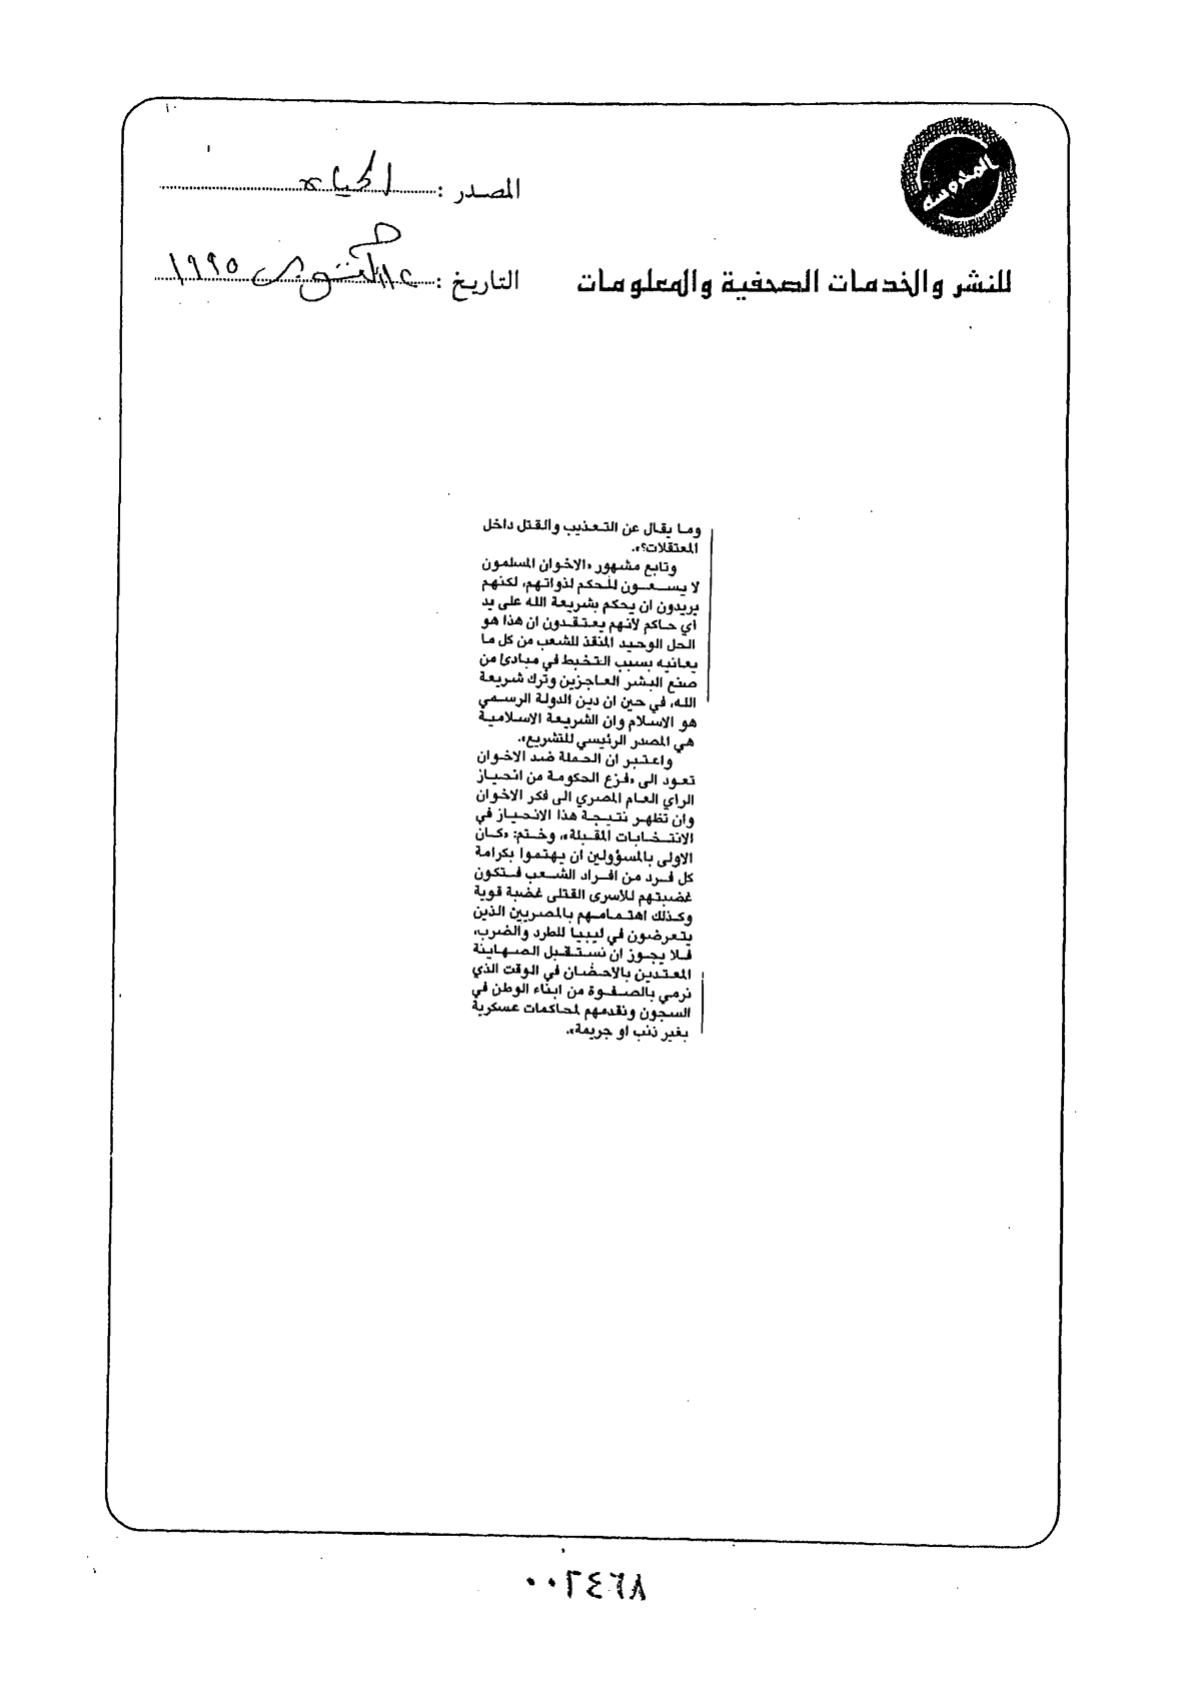 المصدر : الحياة
للنشر والخدمات الصحفية والمعلومات
التاريخ : ١٩٩٥
وما يقال عن التعذيب والقتل داخل
المعتقلات؟».
وتابع مشهور «الاخوان المسلمون
لا يسعون للحكم لذواتهم، لكنهم
يريدون ان يحكم بشريعة الله على يد
أي حاكم لأنهم يعتقدون ان هذا هو
الحل الوحيد المنقذ للشعب من كل ما
يعانيه بسبب التخبط في مبادئ من
صنع البشر العاجزين وترك شريعة
الله، في حين ان دين الدولة الرسمي
هو الاسلام وان الشريعة الاسلامية
هي المصدر الرئيسي للتشريع».
واعتبر ان الحملة ضد الاخوان
تعود الى «فزع الحكومة من انحياز
الراي العام المصري الى فكر الاخوان
وان تظهر نتيجة هذا الانحياز في
الانتخابات المقبلة»، وختم: «كان
الاولى بالمسؤولين ان يهتموا بكرامة
كل فرد من افراد الشعب فتكون
غضبتهم للاسرى القتلى غضبة قوية
وكذلك اهتمامهم بالمصريين الذين
يتعرضون في ليبيا للطرد والضرب،
فلا يجوز ان نستقبل الصهاينة
المعتدين بالاحضان في الوقت الذي
نرمي بالصفوة من ابناء الوطن في
السجون ونقدمهم لمحاكمات عسكرية
بغير ذنب او جريمة».
٠٠٢٤٦٨